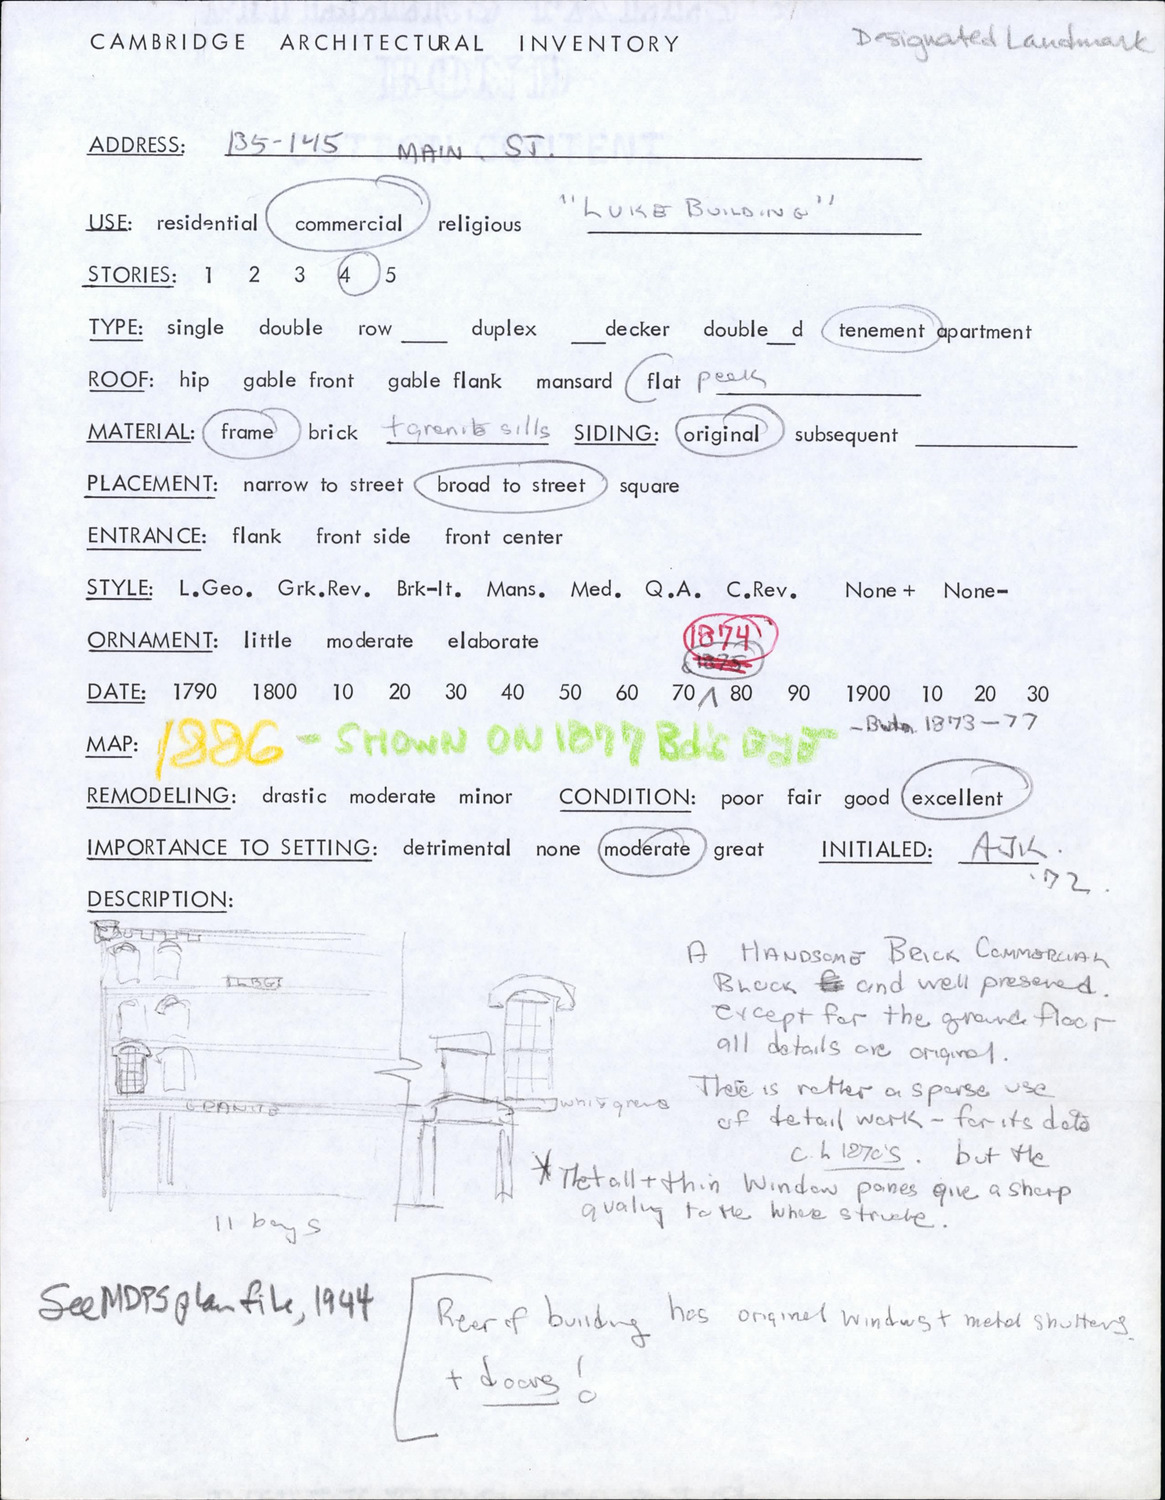 CAMBRIDGE ARCHITECTURAL INVENTORY
Designated Landmark
ADDRESS: 135-145 MAIN ST.
USE: residential commercial religious "LUKE BUILDING"
STORIES: 1 2 3 4 5
TYPE: single double row ___ duplex ___decker double__d tenement apartment
ROOF: hip gable front gable flank mansard flat peak
MATERIAL: frame brick + granite sills SIDING: original subsequent
PLACEMENT: narrow to street broad to street square
ENTRANCE: flank front side front center
STYLE: L.Geo. Grk.Rev. Brk-It. Mans. Med. Q.A. C.Rev. None+ None-
ORNAMENT: little moderate elaborate
1874
1875
DATE: 1790 1800 10 20 30 40 50 60 70 80 90 1900 10 20 30
MAP: 1886 - SHOWN ON 1877 Bd's - Bwtn 1873-77
REMODELING: drastic moderate minor CONDITION: poor fair good excellent
IMPORTANCE TO SETTING: detrimental none moderate great INITIALED: AJK.
'72.
DESCRIPTION:
A HANDSOME BRICK COMMERCIAL
BLOCK and well preserved.
Except for the ground floor
all details are original.
There is rather a sparse use
of detail work - for its date
1870's. but the
* The tall + thin window panes give a sharp
quality to the whole structure.
GRANITE
white granite
11 bays
See MDPS plan file, 1944
Rear of building has original windows + metal shutters
+ doors!